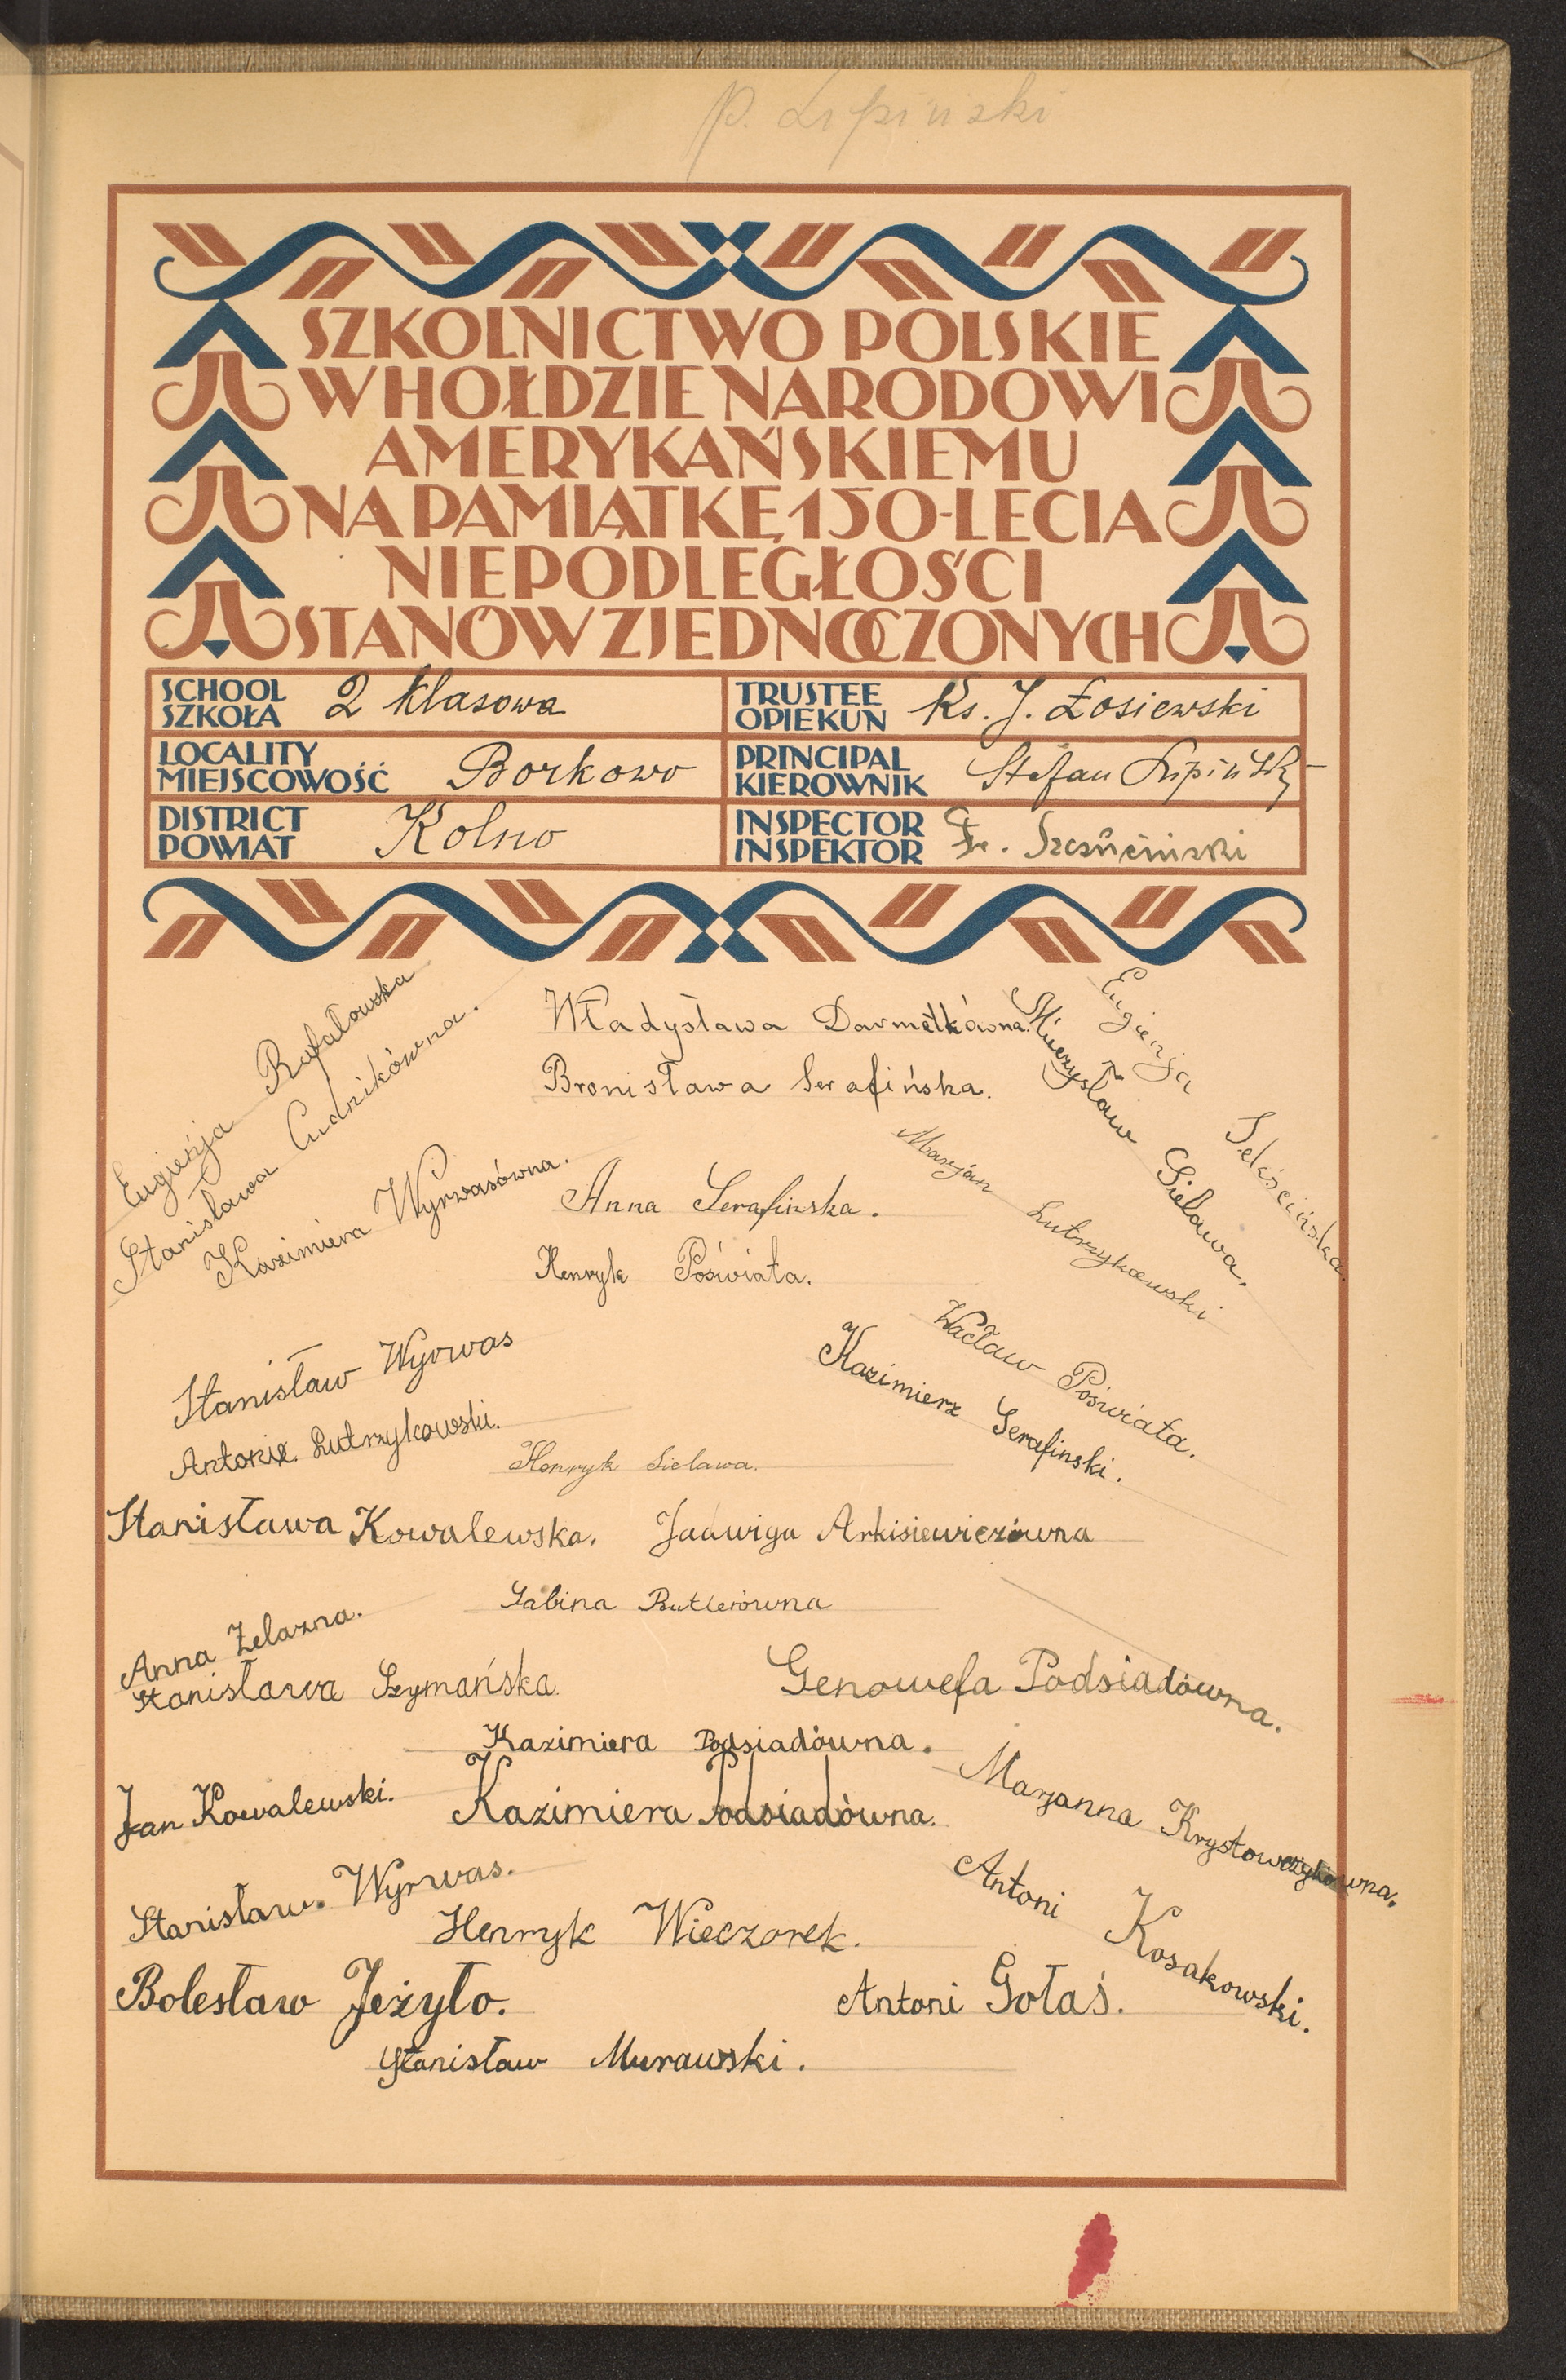 P. Lipiński
SZKOLNICTWO POLSKIE
W HOŁDZIE NARODOWI
AMERYKAŃSKIEMU
NA PAMIĄTKĘ 150-LECIA
NIEPODLEGŁOŚCI
STANÓW ZJEDNOCZONYCH
SCHOOL
SZKOŁA 2 klasowa
TRUSTEE
OPIEKUN Ks. J. Łosiewski
LOCALITY
MIEJSCOWOŚĆ Borkowo
PRINCIPAL
KIEROWNIK Stefan Lipiński
DISTRICT
POWIAT Kolno
INSPECTOR
INSPEKTOR Fr.
Eugienja Rafałowska
Stanisława Cudnikówna.
Kazimiera Wyrwasówna.
Władysława Darmetkówna.
Bronisława Serafińska.
Anna Serafinska.
Henryk Pośwíata.
Eugienja
Mieczysław Sielawa.
Marjan Lutrzykowski
Wacław Pośwíata.
Kazimierz Serafinski.
Stanisław Wyrwas
Antoni Lutrzykowski.
Henryk Sielawa.
Stanisława Kowalewska.
Jadwiga Arkisiewiczówna
Sabina Butlerówna
Anna Żelazna.
Stanisława Szymańska.
Genowefa Podsiadówna.
Kazimiera Podsiadówna.
Jan Kowalewski.
Kazimiera Podsiadówna.
Marjanna
Stanisław. Wyrwas.
Henryk Wieczorek.
Antoni Kosakowski.
Bolesław Jeżyło.
Antoni Gołaś.
Stanisław Murawski.